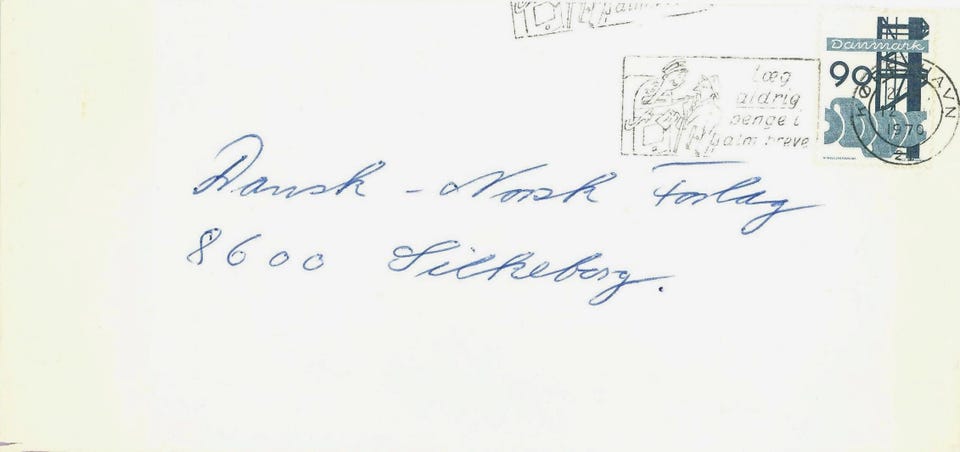 Læg
aldrig
penge i
alm breve
Danmark
90
KØBENHAVN
12
1970
Dansk - Norsk Forlag
8600 Silkeborg.